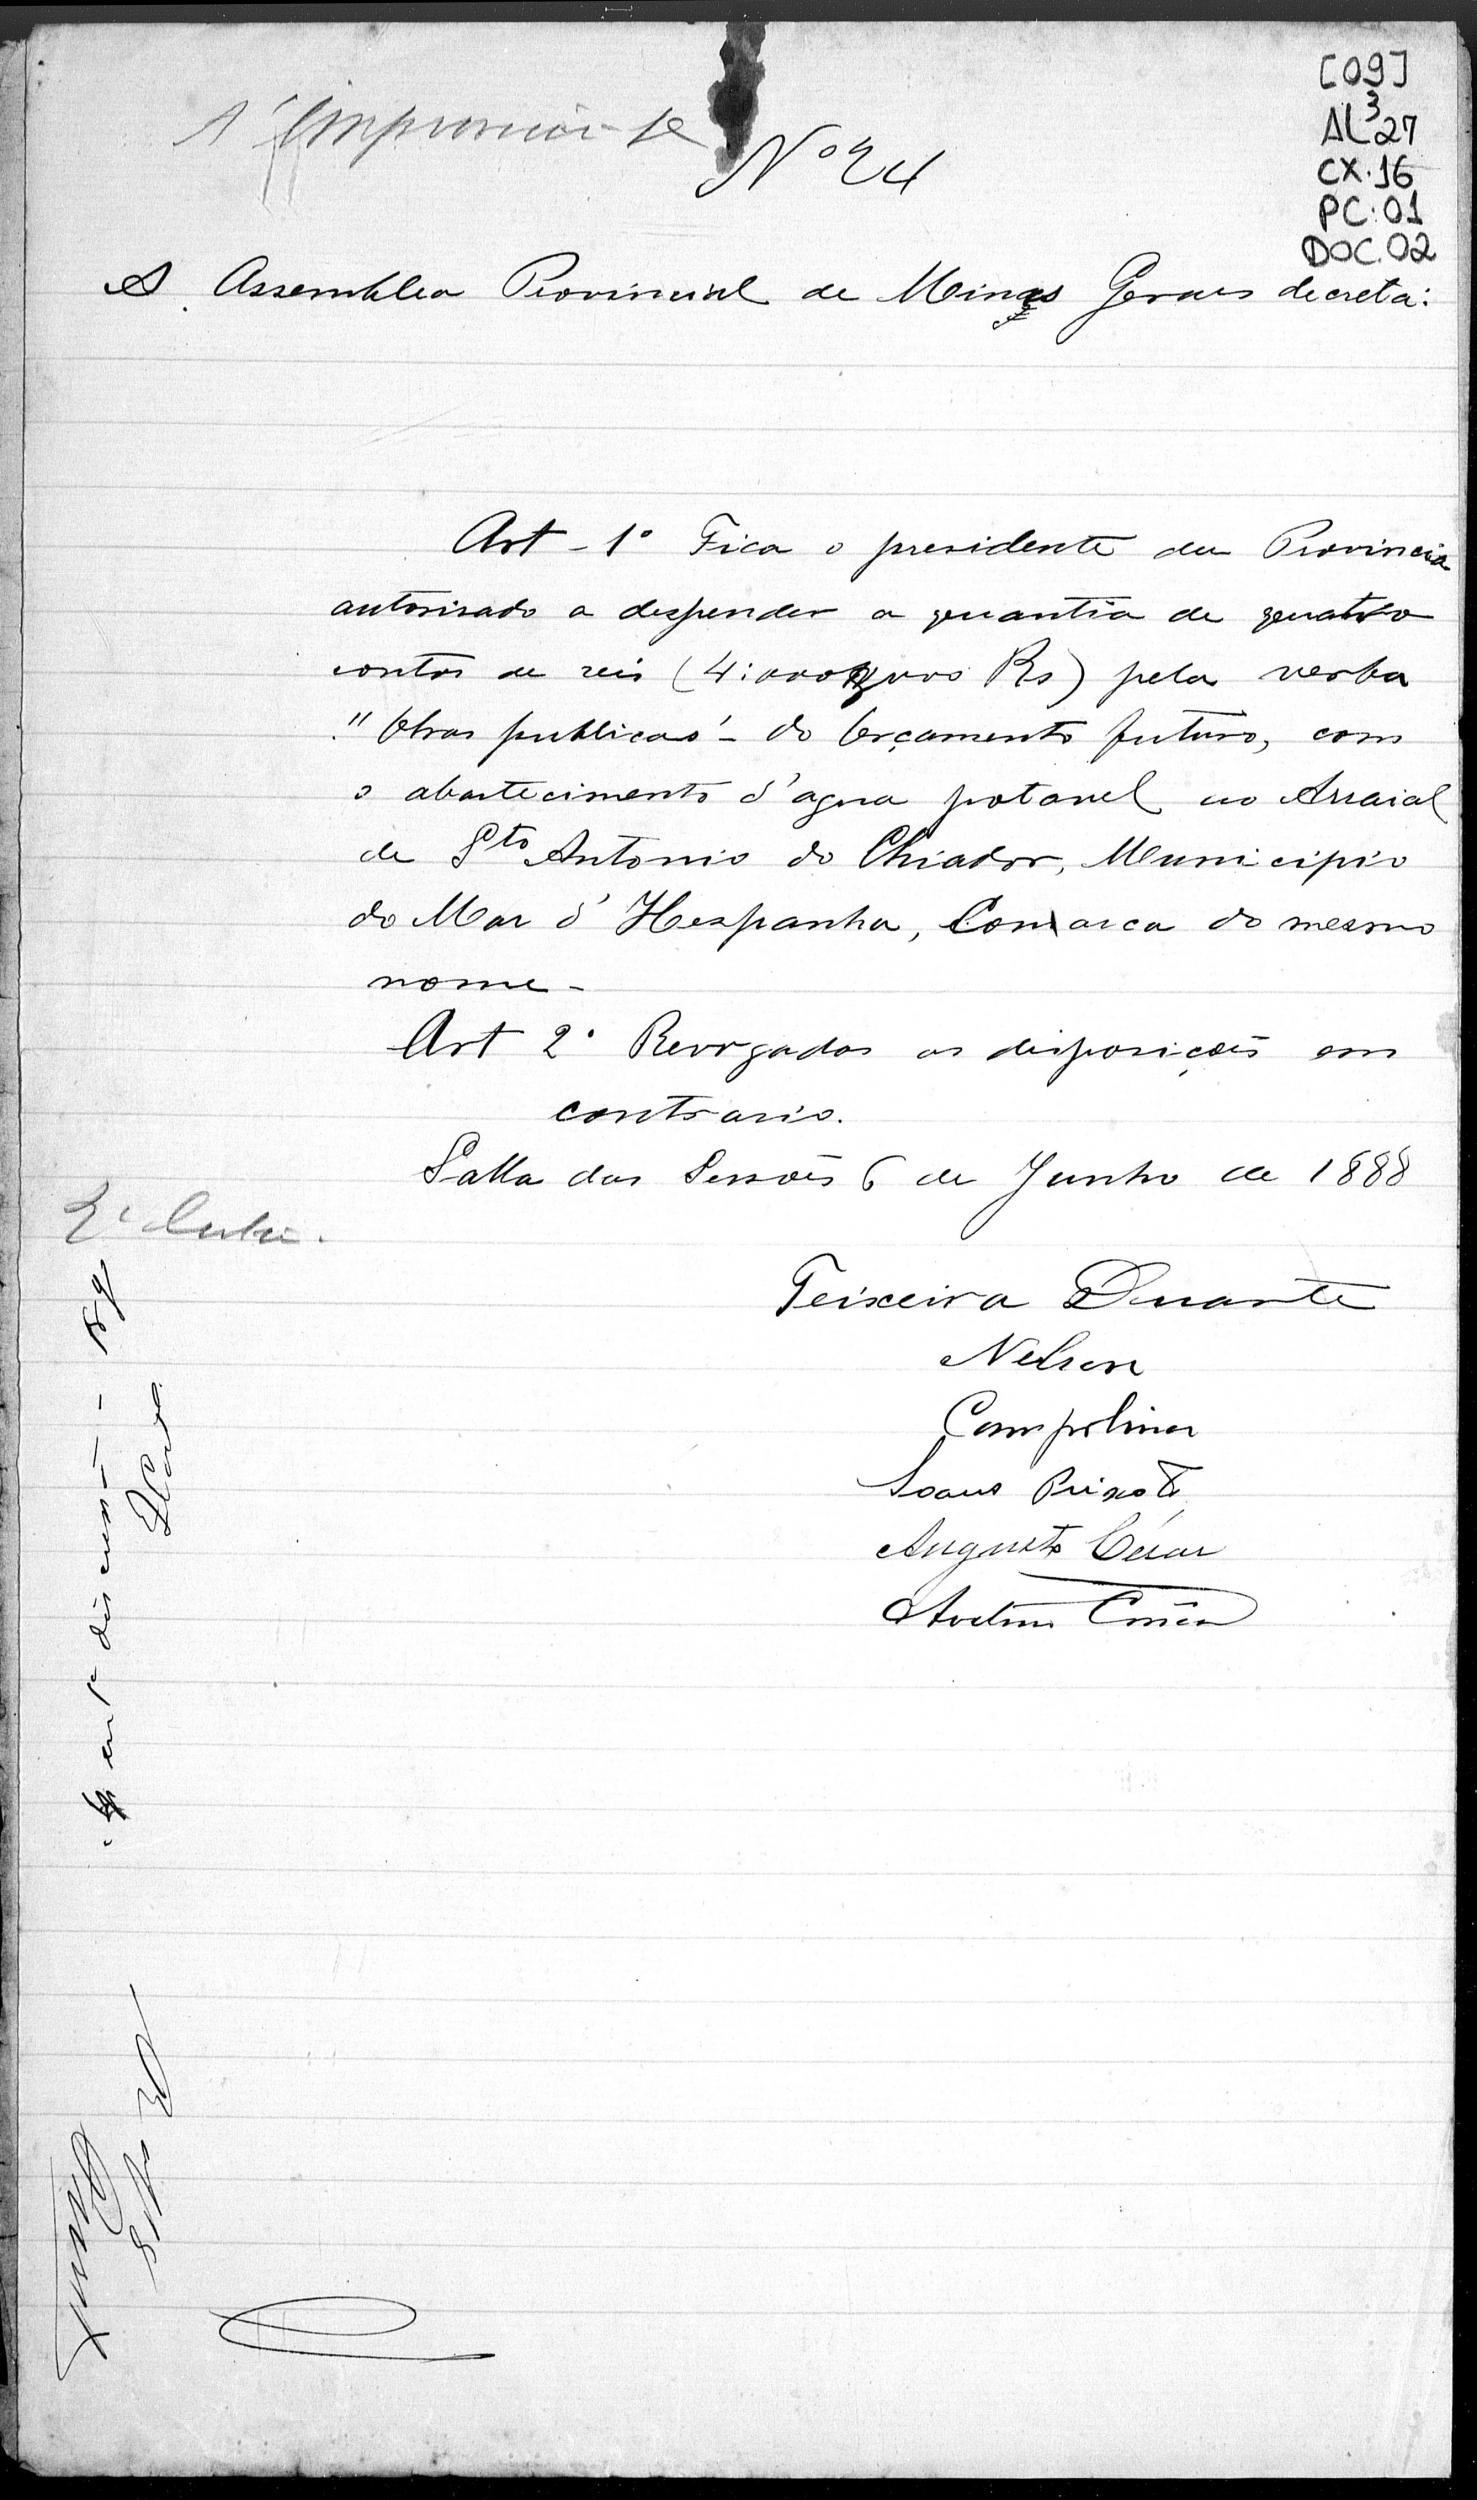 [09]
AL³27
CX.16
PC:01
DOC.02
Nº 24
A Assemblea Provincial de Minas Geraes decreta:
Art - 1º Fica o presidente da Provincia
autorisado a despender a quantia de quatro
contos de reis (4:000$000 Rs) pela verba
"Obras publicas" - do Orçamento futuro, com
o abastecimento d'agua potavel ao Arraial
de Sto Antonio do Chiador, Municipio
do Mar d'Hespanha, Comarca do mesmo
nome -
Art 2º Revogadas as disposições em
contrario.
Salla das Sessões 6 de Junho de 1888
Teixeira Duarte
Nelson
Campolina
Soares Peixoto
Augusto Cesar
Avelino Corrêa
em 1ª discussão